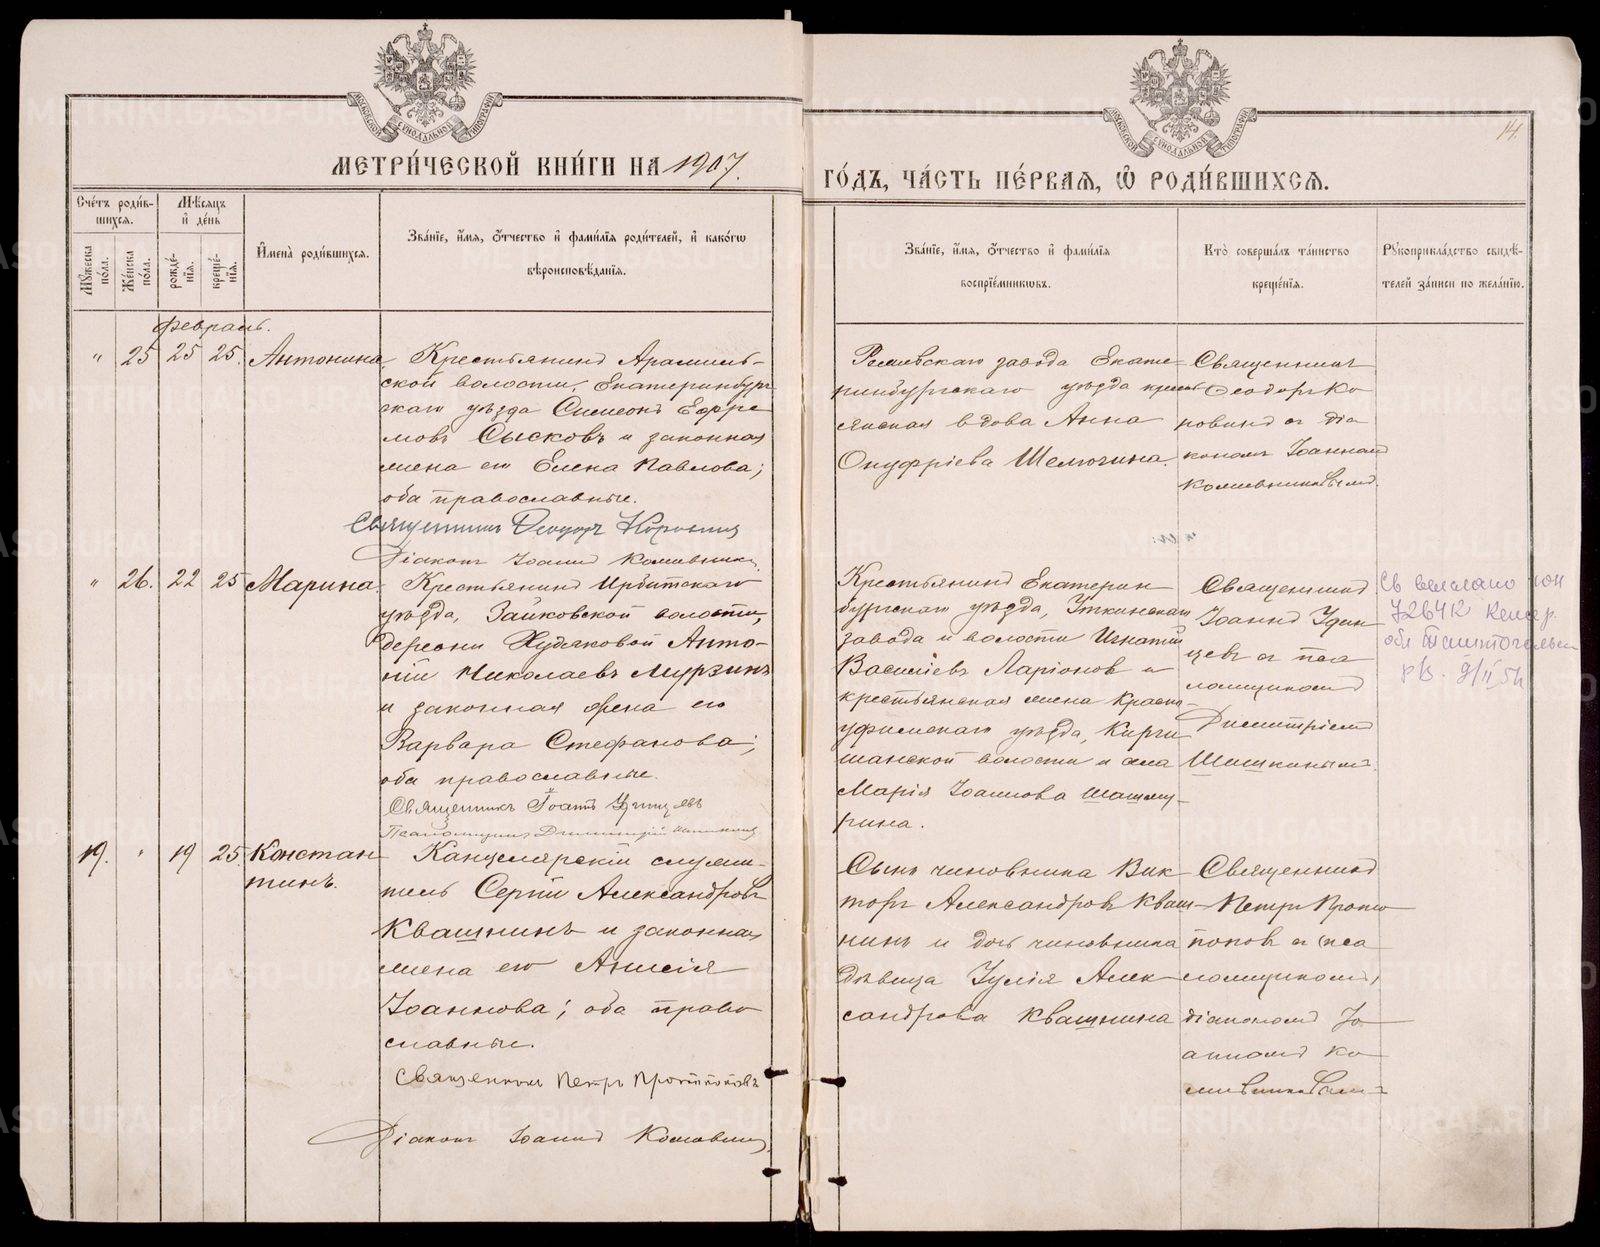 МЕТРИ́ЧЕСКОЙ КНИ́ГИ НА 1907.
ГО́ДЪ, ЧА́СТЬ ПЕ́РВАЯ, Ѡ РОДИ́ВШИХСЯ.
14.
Сче́тъ роди́в-
шихся.
Мѣсяцъ
и де́нь
Му́жеска
по́ла.
Же́нска
по́ла.
рожде́-
нїя.
креще́-
нїя.
Имена̀ роди́вшихся.
Зва́нїе, и́мя, ѻ́тчество и фами́лїя роди́телей, и како́гѡ
вѣроисповѣ́данїя.
Зва́нїе, и́мя, ѻ́тчество и фами́лїя
воспрїе́мниковъ.
Кто̀ соверша́лъ та́инство
креще́нїя.
Рукоприкла́дство свидѣ́-
телей за́писи по жела́нїю.
Февраль.
" 25 25 25. Антонина.
Крестьянинъ Арамиль-
ской волости, Екатеринбург
скаго уѣзда Симеонъ Ефре
мовъ Сысковъ и законная
жена его Елена Павлова;
оба православные.
Священникъ Ѳеодоръ Коровинъ
Діаконъ Іоаннъ
Режевскаго завода Екате-
ринбургскаго уѣзда кресть
янская вдова Анна
Онуфріева Шелюгина.
Священникъ
Ѳеодоръ Ко
ровинъ съ діа
кономъ Іоанномъ
" 26. 22 25 Марина.
Крестьянинъ Ирбитскаго
уѣзда, Зайковской волости,
деревни Худяковой Анто-
ній Николаевъ Мурзинъ
и законная жена его
Варвара Стефанова;
оба православные.
Священникъ Іоаннъ
Псаломщикъ Димитрій
Крестьянинъ Екатерин
бургскаго уѣзда, Уткинскаго
завода и волости Игнатій
Василіевъ Ларіоновъ и
крестьянская жена Красно-
уфимскаго уѣзда, Кирги
шанской волости и села
Марія Іоаннова Шашму-
рина.
Священникъ
Іоаннъ Удин
цевъ съ пса
ломщикомъ
Димитріемъ
Св выслано
72642 Кемер.
обл
19. " 19 25 Констан
тинъ.
Канцелярскій служи-
тель Сергій Александровъ
Квашнинъ и законная
жена его Анисія
Іоаннова; оба право
славные.
Священникъ Петръ Протопоповъ
Діаконъ Іоаннъ
Сынъ чиновника Вик
торъ Александровъ Кваш-
нинъ и дочь чиновника
дѣвица Іулія Алек
сандрова Квашнина
Священникъ
Петръ Прото
поповъ съ пса
ломщикомъ,
діакономъ Іо
анномъ Ко
METRIKI.GASO-URAL.RU